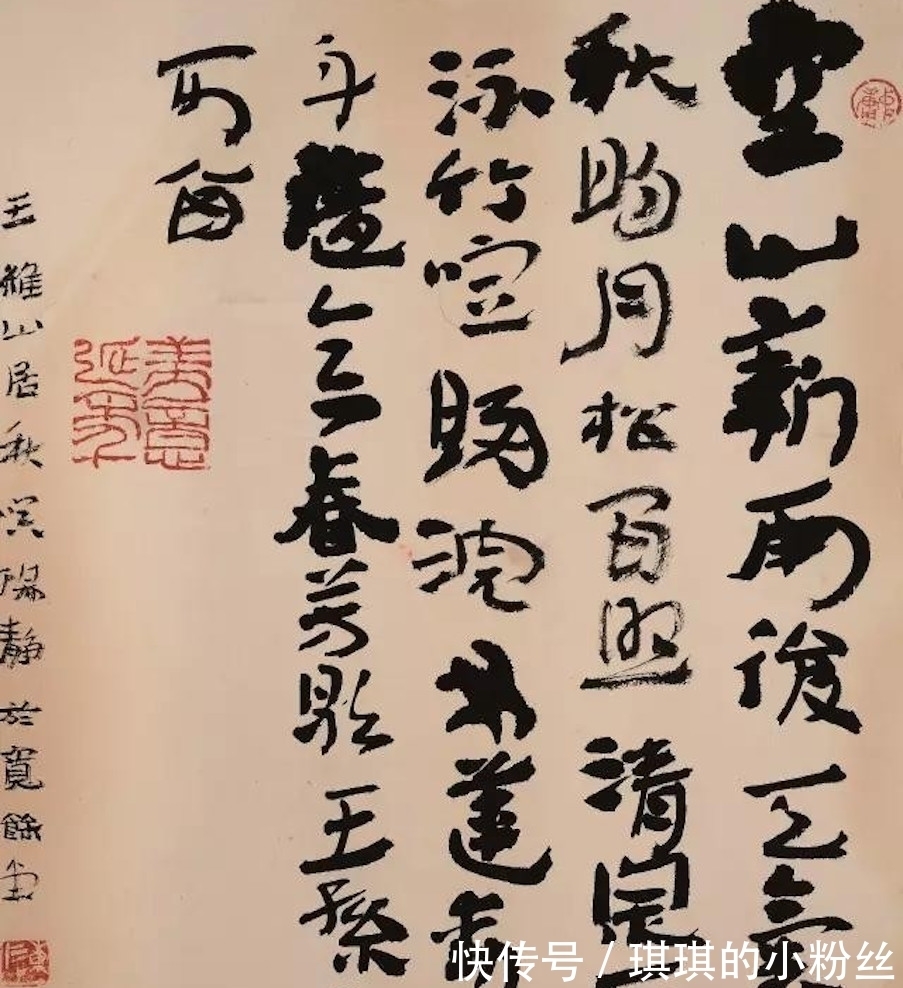 空山新雨後天氣
秋明月松間照清泉
流竹喧歸浣女蓮動
舟隨意春芳歇王孫
可留
王維山居秋暝 靜於寬餘堂
美意延年
快传号 / 琪琪的小粉丝